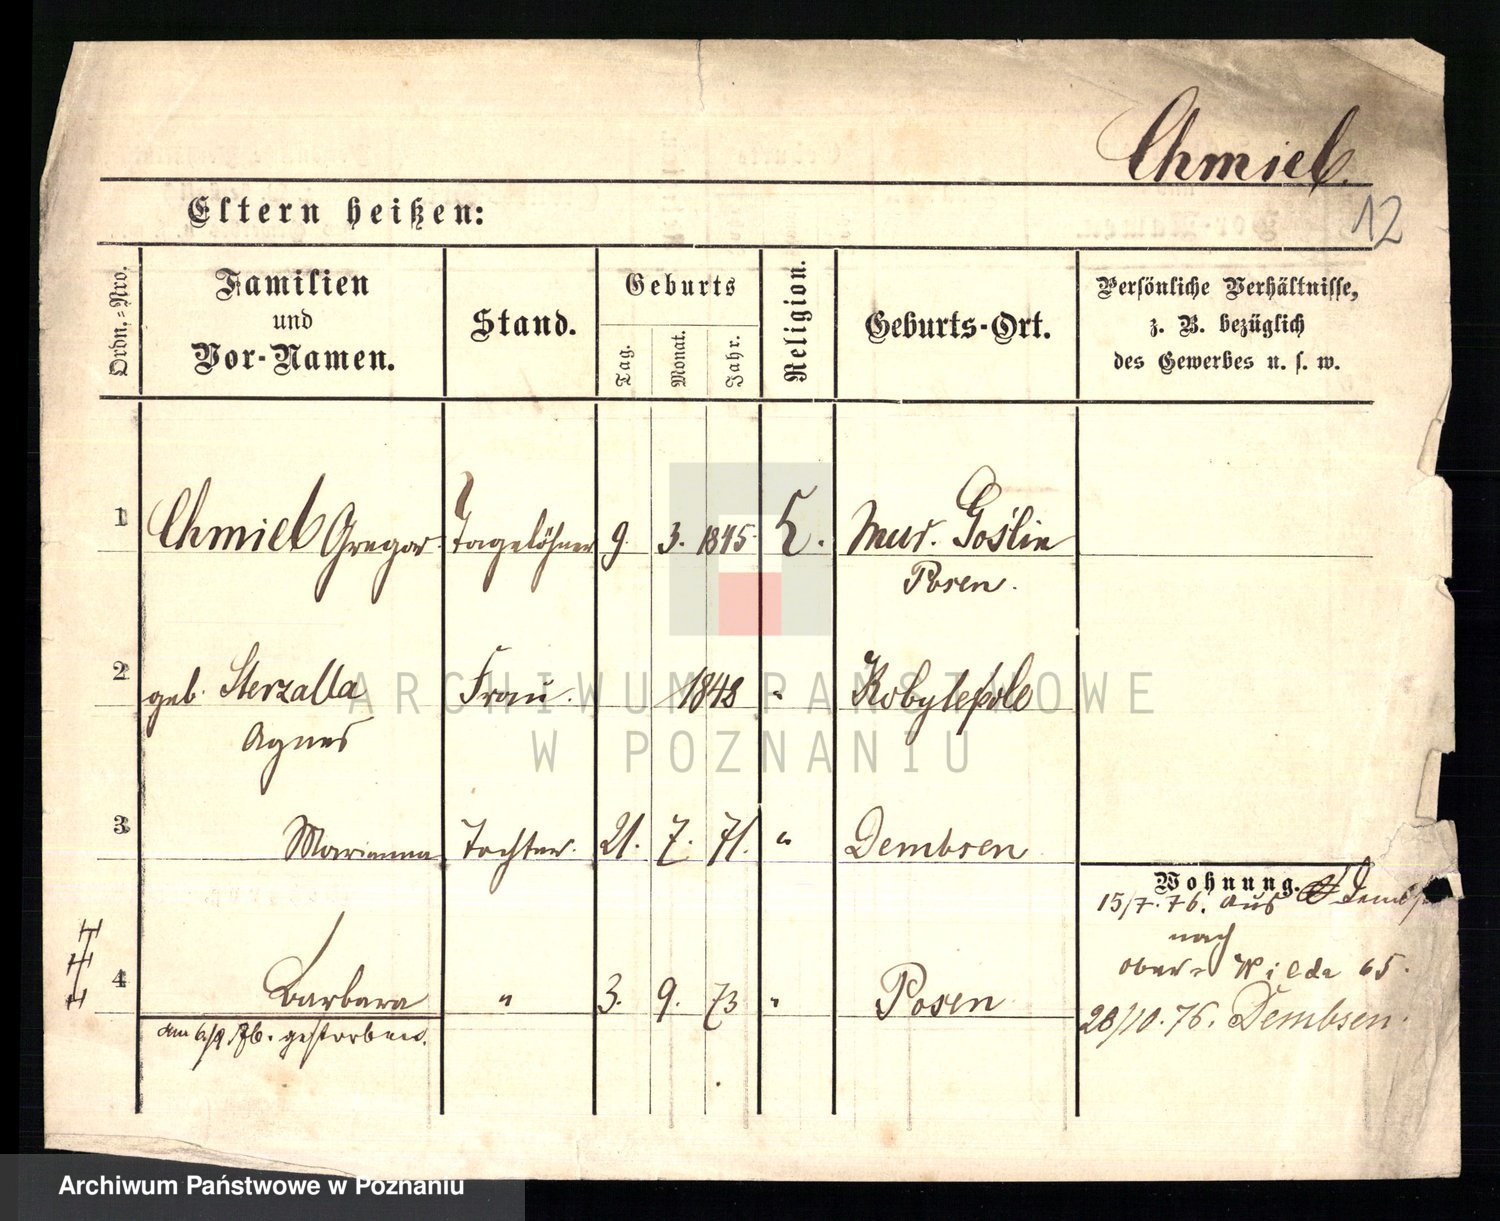 Chmiel.
12
Eltern heißen:
Ordn.-Nro.
Familien
und
Vor-Namen.
Stand.
Geburts
Tag.
Monat.
Jahr.
Religion.
Geburts-Ort.
Persönliche Verhältnisse,
z. B. bezüglich
des Gewerbes u. s. w.
1 Chmiel Gregor. Tagelöhner 9. 3. 1845. k. Mur. Goślin
Posen.
2 geb. Sterzalla Frau. 1848 " Kobylepole
Agnes
3 Marianna Tochter. 21. 7. 71. " Dembsen
Wohnung.
15/7. 76. aus
nach
Ober-Wilda 65.
4 Barbara " 3. 9. 73 " Posen
28/10. 76. Dembsen.
am 6/9. 76. gestorben.
ARCHIWUM PAŃSTWOWE
W POZNANIU
Archiwum Państwowe w Poznaniu